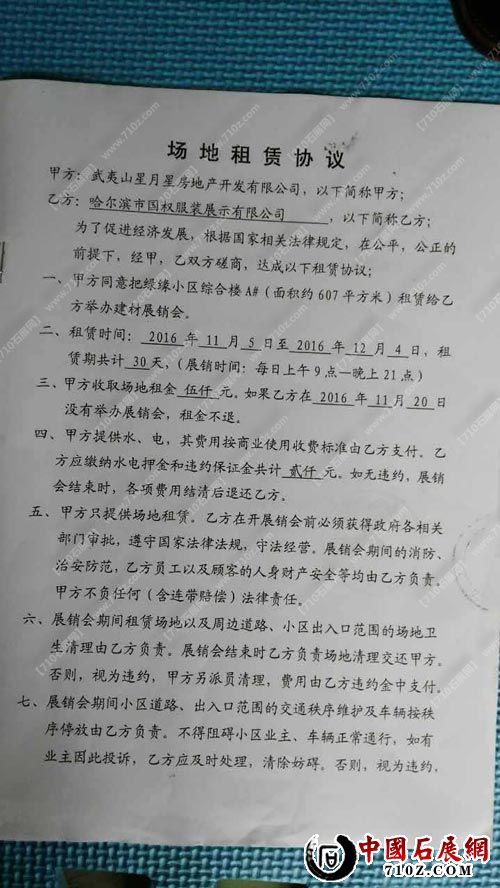 场地租赁协议
甲方：武夷山星月星房地产开发有限公司，以下简称甲方；
乙方：哈尔滨市国权服装展示有限公司，以下简称乙方；
为了促进经济发展，根据国家相关法律规定，在公平，公正的
前提下，经甲，乙双方磋商，达成以下租赁协议；
一、甲方同意把绿缘小区综合楼A#（面积约607平方米）租赁给乙
方举办建材展销会。
二、租赁时间：2016年11月5日至2016年12月4日，租
赁期共计30天，（展销时间：每日上午9点—晚上21点）
三、甲方收取场地租金伍仟元。如果乙方在2016年11月20日
没有举办展销会，租金不退。
四、甲方提供水、电，其费用按商业使用收费标准由乙方支付。乙
方应缴纳水电押金和违约保证金共计贰仟元。如无违约，展销
会结束时，各项费用结清后退还乙方。
五、甲方只提供场地租赁。乙方在开展销会前必须获得政府各相关
部门审批，遵守国家法律法规，守法经营。展销会期间的消防、
治安防范，乙方员工以及顾客的人身财产安全等均由乙方负责。
甲方不负任何（含连带赔偿）法律责任。
六、展销会期间租赁场地以及周边道路、小区出入口范围的场地卫
生清理由乙方负责。展销会结束时乙方负责场地清理交还甲方。
否则，视为违约，甲方另派员清理，费用由乙方违约金中支付。
七、展销会期间小区道路、出入口范围的交通秩序维护及车辆按秩
序停放由乙方负责。不得阻碍小区业主、车辆正常通行，如有
业主因此投诉，乙方应及时处理，清除妨碍。否则，视为违约，
中國石展網
710Z.COM